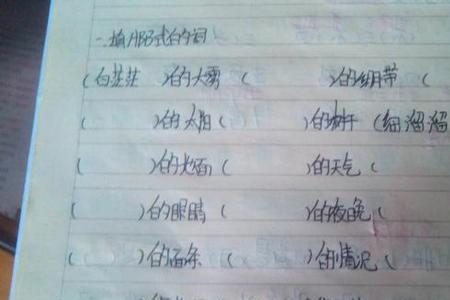 一.填ABB式的词
(白茫茫 )的大雾 ( )的绷带 (
( )的太阳 ( )的树干 (细溜溜
( )的光面 ( )的天气 (
( )的眼睛 ( )的夜晚 (
( )的面条 ( )的情况 (